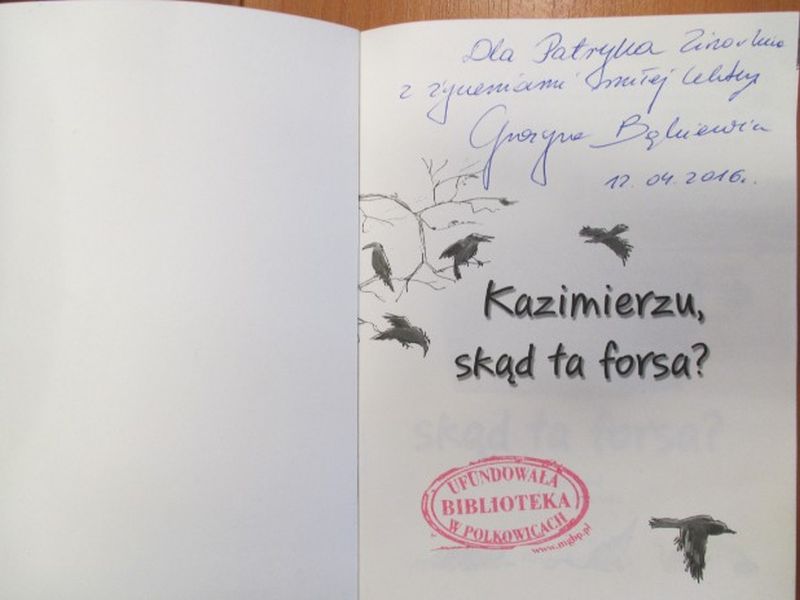 Dla Patryka
z życzeniami miłej lektury
Grażyna Bąkiewicz
12.04.2016r.
Kazimierzu,
skąd ta forsa?
UFUNDOWAŁA
BIBLIOTEKA
W POLKOWICACH
www.mgbp.pl